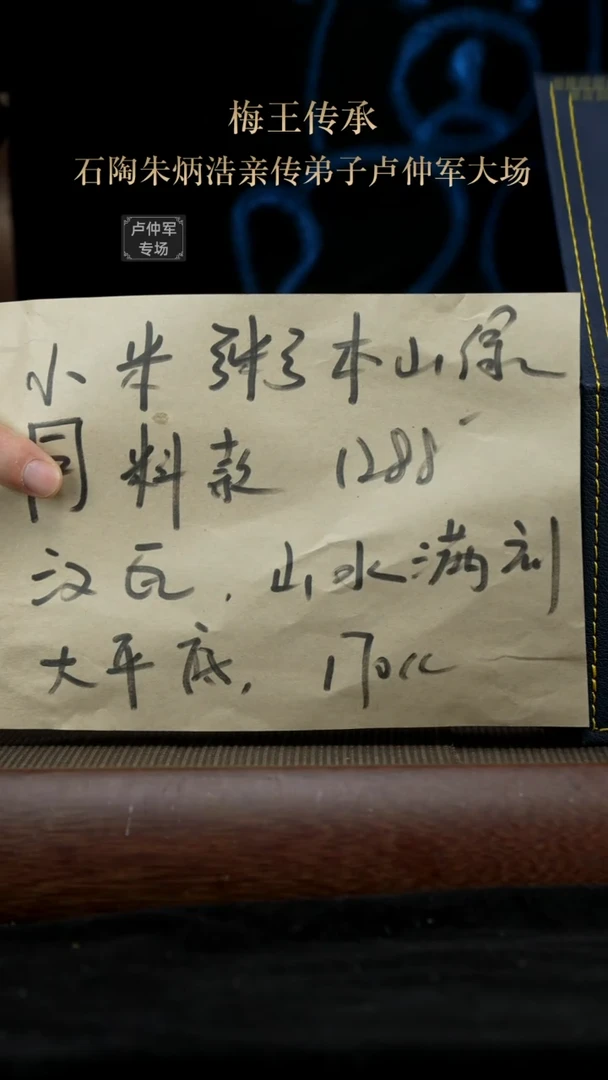 梅王传承
石陶朱炳浩亲传弟子卢仲军大场
卢仲军
专场
小米粥本山绿
同料款 1288
汉瓦，山水满刻
大平底，170cc